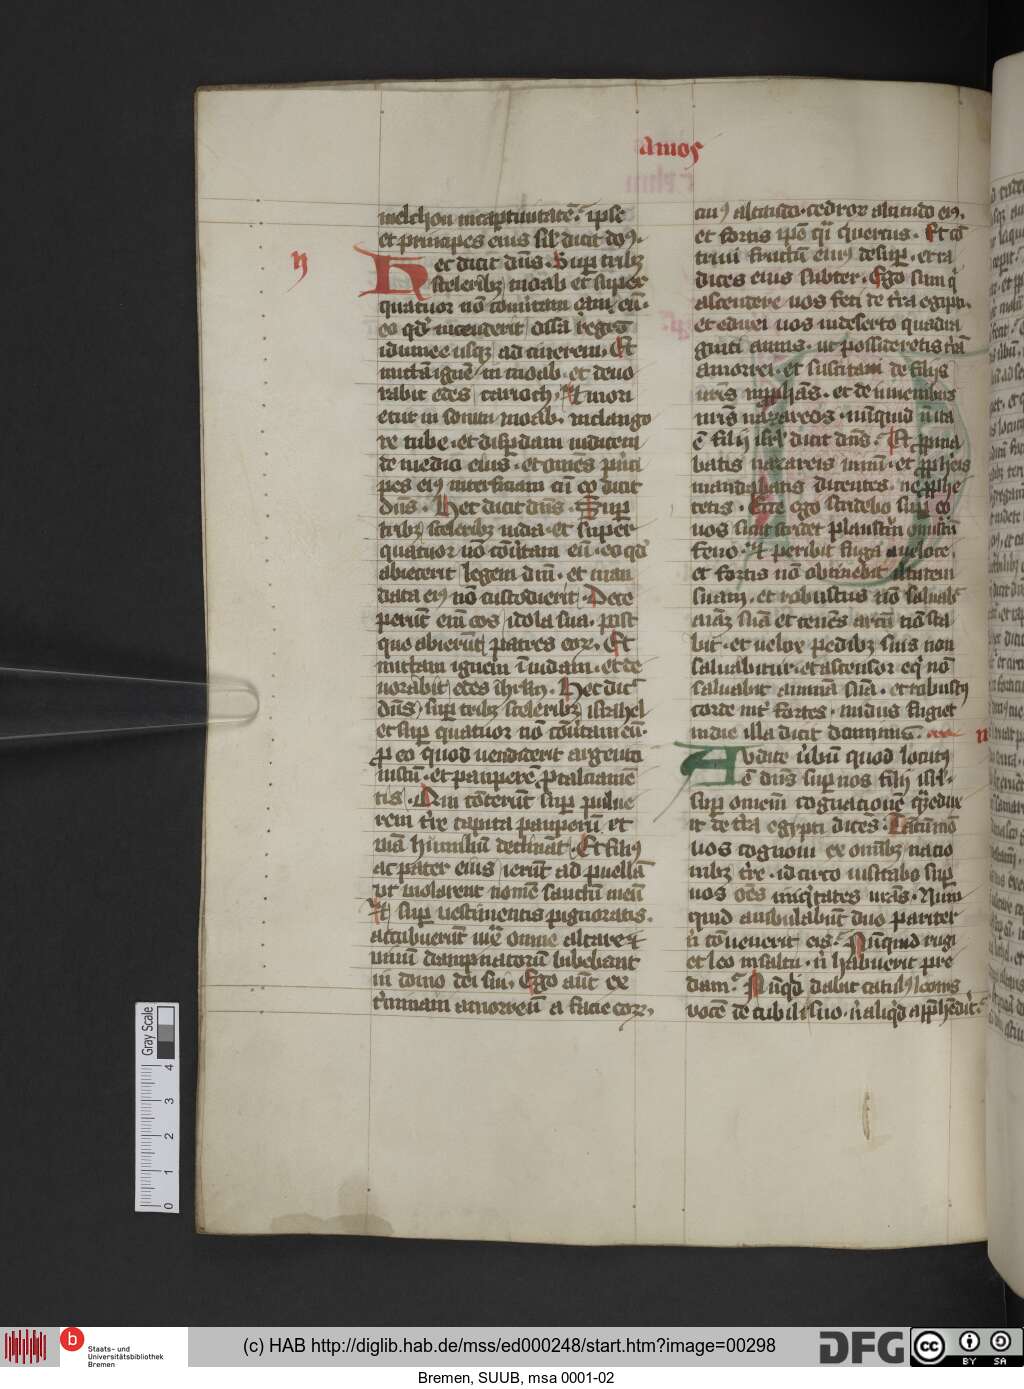 Amos
melchon in captiuitatē. ipse
et principes eius sil' dicit dos.
H ec dicit dn̄s. Sup̄ tribȝ
sceleribȝ moab et super
quatuor nō conuertam eam eū.
eo qd' incenderit ossa regꝭ
idumee usqȝ ad cinerem. Et
mittā ignē in moab. et deuo
rabit edes carioth. Et mori
etur in sonitu moab. in clango
re tube. et disp̄dam iudicem
de medio eius. et omēs prīci
pes eiꝰ interficiam cū eo dicit
dn̄s. Hec dicit dn̄s. Sup̄
tribȝ sceleribȝ iuda. et super
quatuor nō cōu'tam eū. eo qd'
abiecerit legem dn̄i. et man
data eiꝰ nō custodierit. Dece
perūt eim̄ eos idola sua. post
que abierūt patres eoꝝ. Et
mittam ignem ī iudam. et de
uorabit edes ih'rlm̄. Hec dic̄
dn̄s sup̄ tribȝ sceleribȝ israhel
et sup̄ quatuor nō cōu'tam eū.
ꝓ eo quod uendiderit argento
iustū. et pauperē ꝓ calciamē
tis. Qui cōterūt sup̄ pulue
rem t're capita pauperū et
uiā humiliū declināt. Et filiꝰ
ac pater eius ierūt ad puellā
ut uiolarent nomē sanctū meū
Et sup̄ uestimentis pignoratis.
accubuerūt iux̄ omne altare et
uinū dampnatorū bibebant
in domo dei sui. Ego aūt ex
t'minaui amorreū a facie eoꝝ.
cuiꝰ altitudo. cedroꝝ altitudo eiꝰ.
et fortis ipē q̄i quercus. Et cō
triui fructū eiꝰ desup̄. et ra
dices eius subter. Ego sum q'
ascendere uos feci de t'ra egipti.
et eduxi uos in deserto quadra
ginti annis. ut possideretis t'rā
amorrei. et suscitaui de filijs
ur̄is ꝓphās. et de iuuenibus
ur̄is nazareos. nūquid n̄ ita
ē filij isrl' dicit dn̄s. Et ꝓpina
batis nazareis uinū. et ꝓph'is
mandabatis dicentes. ne ꝓphe
tetis. Ecce ego stridebo sup̄ eo
uos sicut stridet plaustrū onustū
feno. Et peribit fuga a ueloce.
et fortis nō obtinebit u'tutem
suam. et robustus nō saluab'
aīaȝ suā et tenēs arcū nō sta
bit. et uelox pedibȝ suis non
saluabitur. et ascensor eq' nō
saluabit animā suā. et robustꝰ
corde int' fortes. nudus fugiet
in die illa dicit dominus.
A udite u'bū quod locutꝰ
ē dn̄s sup̄ uos filij isrl'.
sup̄ omem̄ cognacionē q̄ edux
it de t'ra egypti dicēs. Tātūmō
uos cognoui ex omībȝ nacio
nibȝ t're. idcirco uisitabo sup̄
uos oēs iniq'tates ur̄as. Num
quid ambulabūt duo pariter
n' cōuenerit eis. Nūquid rugi
et leo in saltu. n' habuerit pre
dam. Nūqd' dabit catulꝰ leonis
uocē de cubili suo. n' aliq'd app̄h'edit.
Gray Scale
0 1 2 3 4
b
Staats- und
Universitätsbibliothek
Bremen
(c) HAB http://diglib.hab.de/mss/ed000248/start.htm?image=00298
DFG
cc BY SA
Bremen, SUUB, msa 0001-02